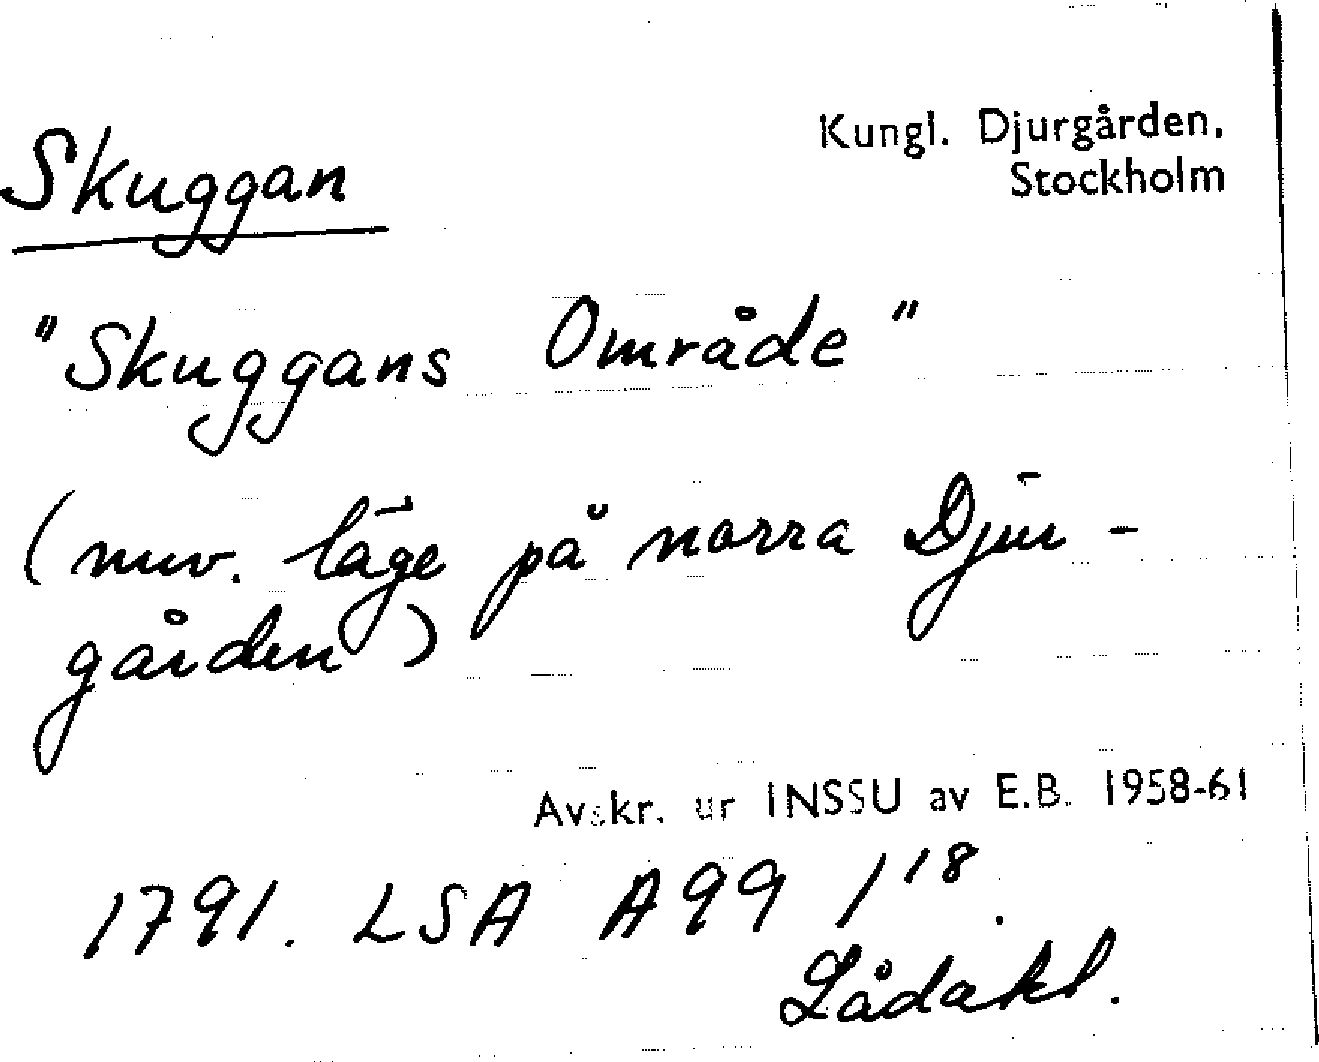 Kungl. Djurgården,
Stockholm
Skuggan
"Skuggans Område"
(nuv. läge på norra Djur-
gården)
Avskr. ur INSSU av E.B. 1958-61
1791. LSA A99 1¹⁸.
Lådakt.